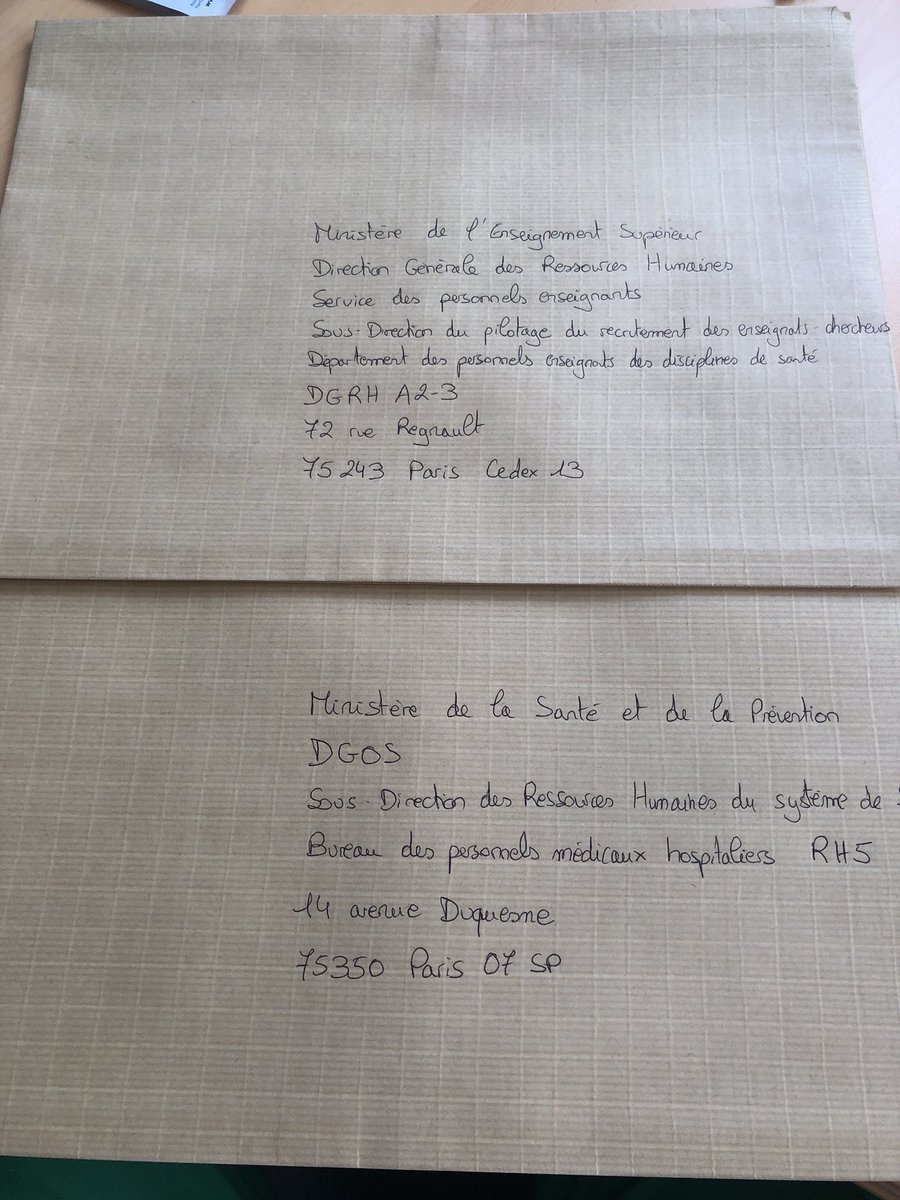 Ministère de l'Enseignement Supérieur
Direction Générale des Ressources Humaines
Service des personnels enseignants
Sous-Direction du pilotage du recrutement des enseignats-chercheurs
Département des personnels enseignats des disciplines de santé
DGRH A2-3
72 rue Regnault
75 243 Paris Cedex 13
Ministère de la Santé et de la Prévention
DGOS
Sous-Direction des Ressources Humaines du système de
Bureau des personnels médicaux hospitaliers RH5
14 avenue Duquesne
75350 Paris 07 SP